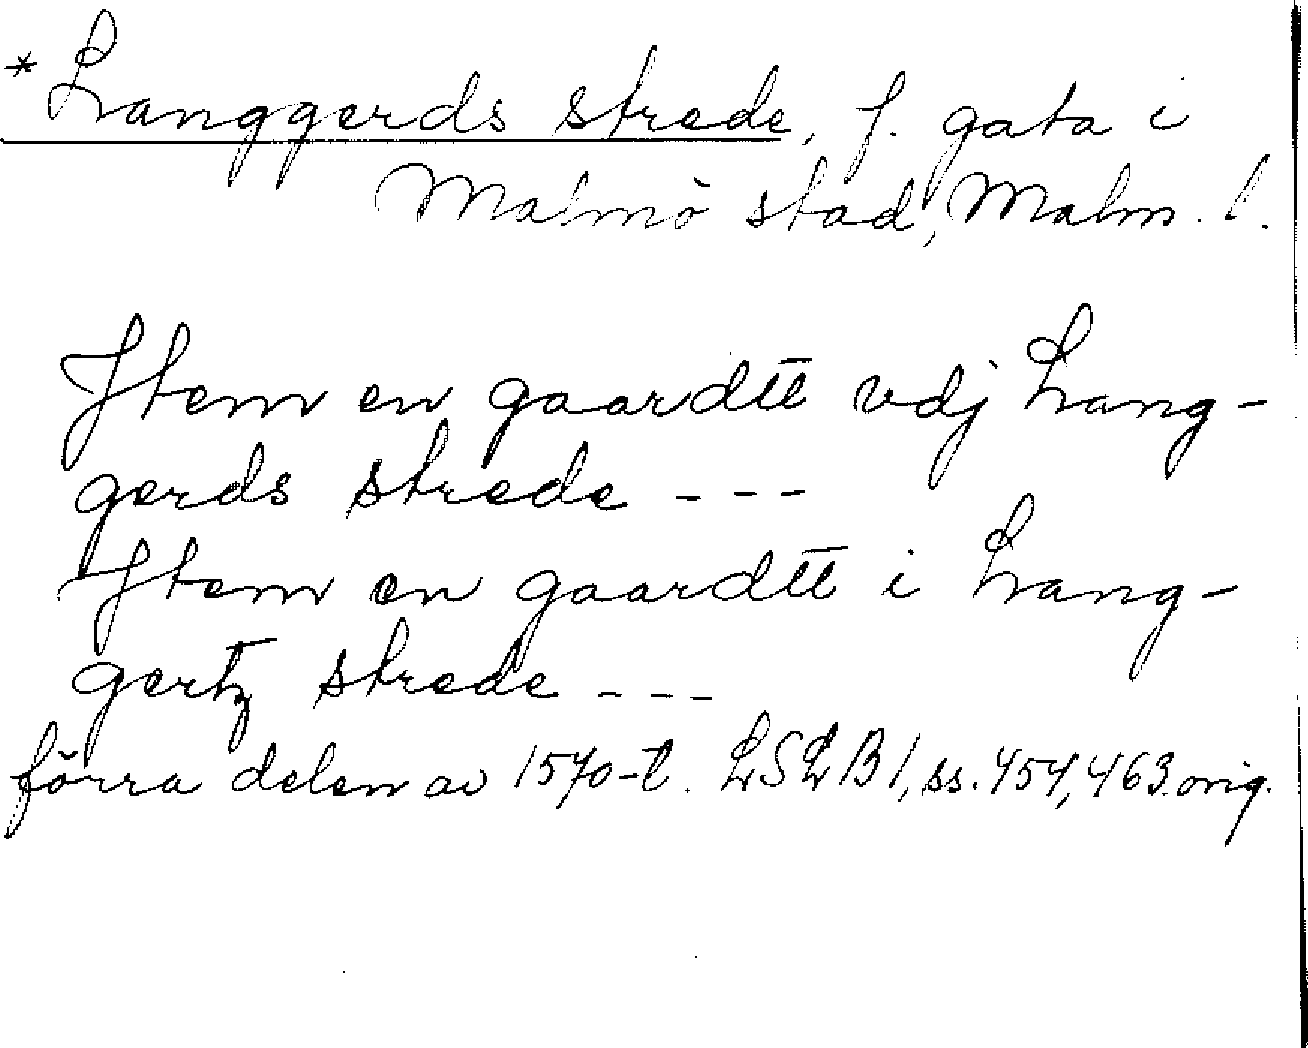 *Langgerds strede, f. gata i
Malmö stad, Malm. l.
Item en gaardtt vdj Lang-
gerds strede ---
Item en gaardtt i Lang-
gertz strede ---
förra delen av 1570-t. LSLB 1, ss. 454, 463. orig.